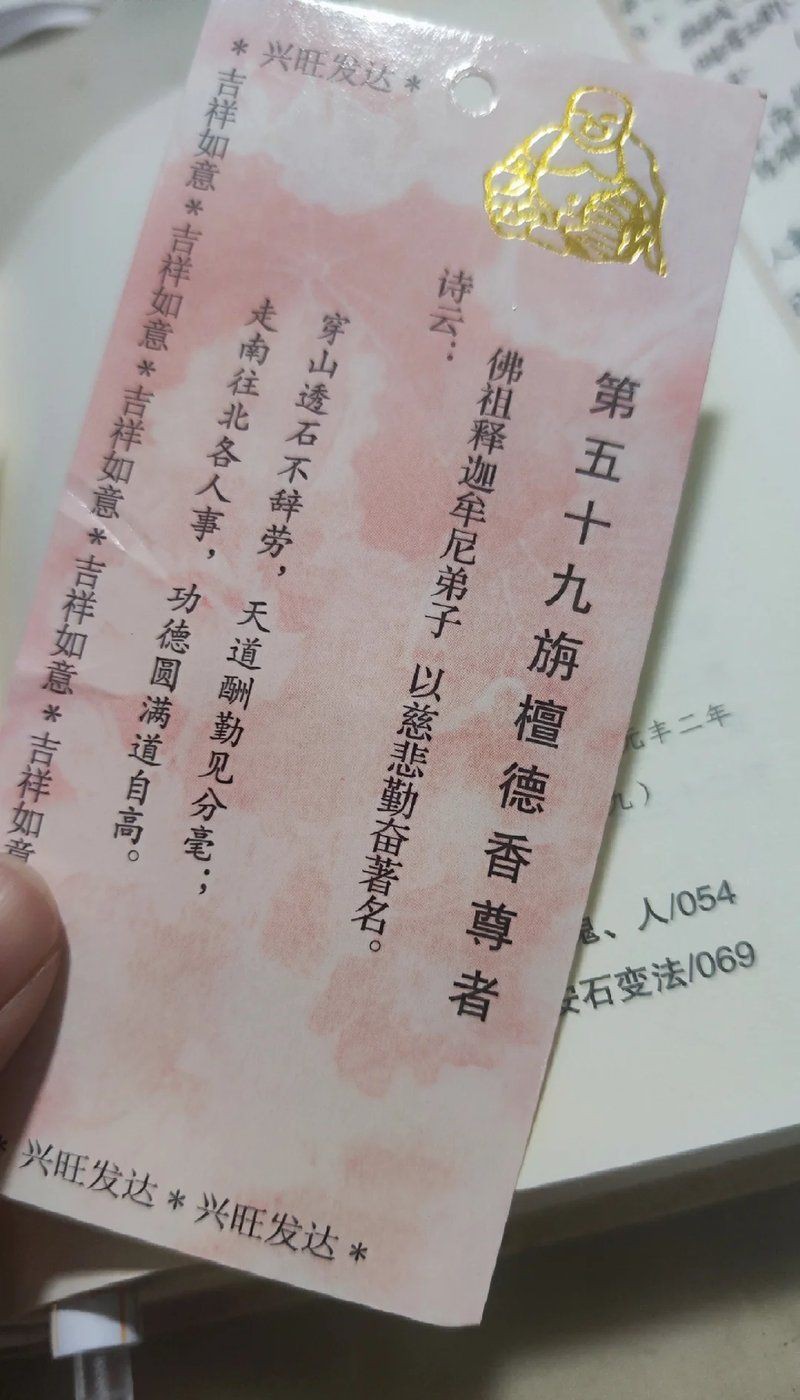 * 兴旺发达 *
第五十九旃檀德香尊者
佛祖释迦牟尼弟子 以慈悲勤奋著名。
诗云：
穿山透石不辞劳，天道酬勤见分毫；
走南往北各人事，功德圆满道自高。
吉祥如意 * 吉祥如意 * 吉祥如意 * 吉祥如意 * 吉祥如意
* 兴旺发达 * 兴旺发达 *
元丰二年
九）
、人/054
安石变法/069